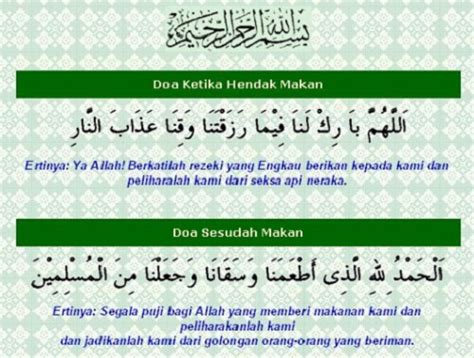 بسم الله الرحمن الرحيم
Doa Ketika Hendak Makan
اَللَّهُمَّ بَا رِكْ لَنَا فِيْمَا رَزَقْتَنَا وَقِنَا عَذَابَ النَّارِ
Ertinya: Ya Allah! Berkatilah rezeki yang Engkau berikan kepada kami dan
peliharalah kami dari seksa api neraka.
Doa Sesudah Makan
اَلْحَمْدُ لِلهِ الَّذِى أَطْعَمَنَا وَسَقَانَا وَجَعَلْنَا مِنَ الْمُسْلِمِيْنَ
Ertinya: Segala puji bagi Allah yang memberi makanan kami dan
peliharakanlah kami
dan jadikanlah kami dari golongan orang-orang yang beriman.